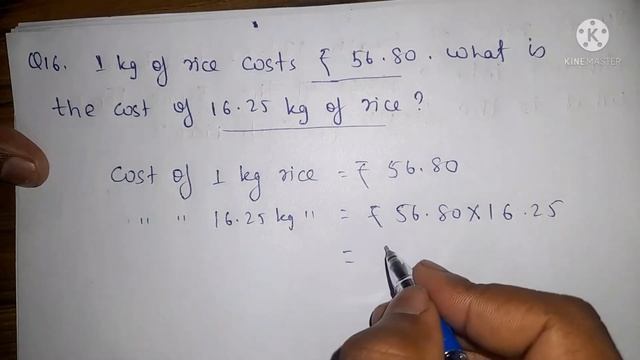 KINEMASTER
Q16. 1 kg of rice costs ₹ 56.80. What is
the cost of 16.25 kg of rice?
Cost of 1 kg rice = ₹ 56.80
" " 16.25 kg " = ₹ 56.80 X 16.25
=